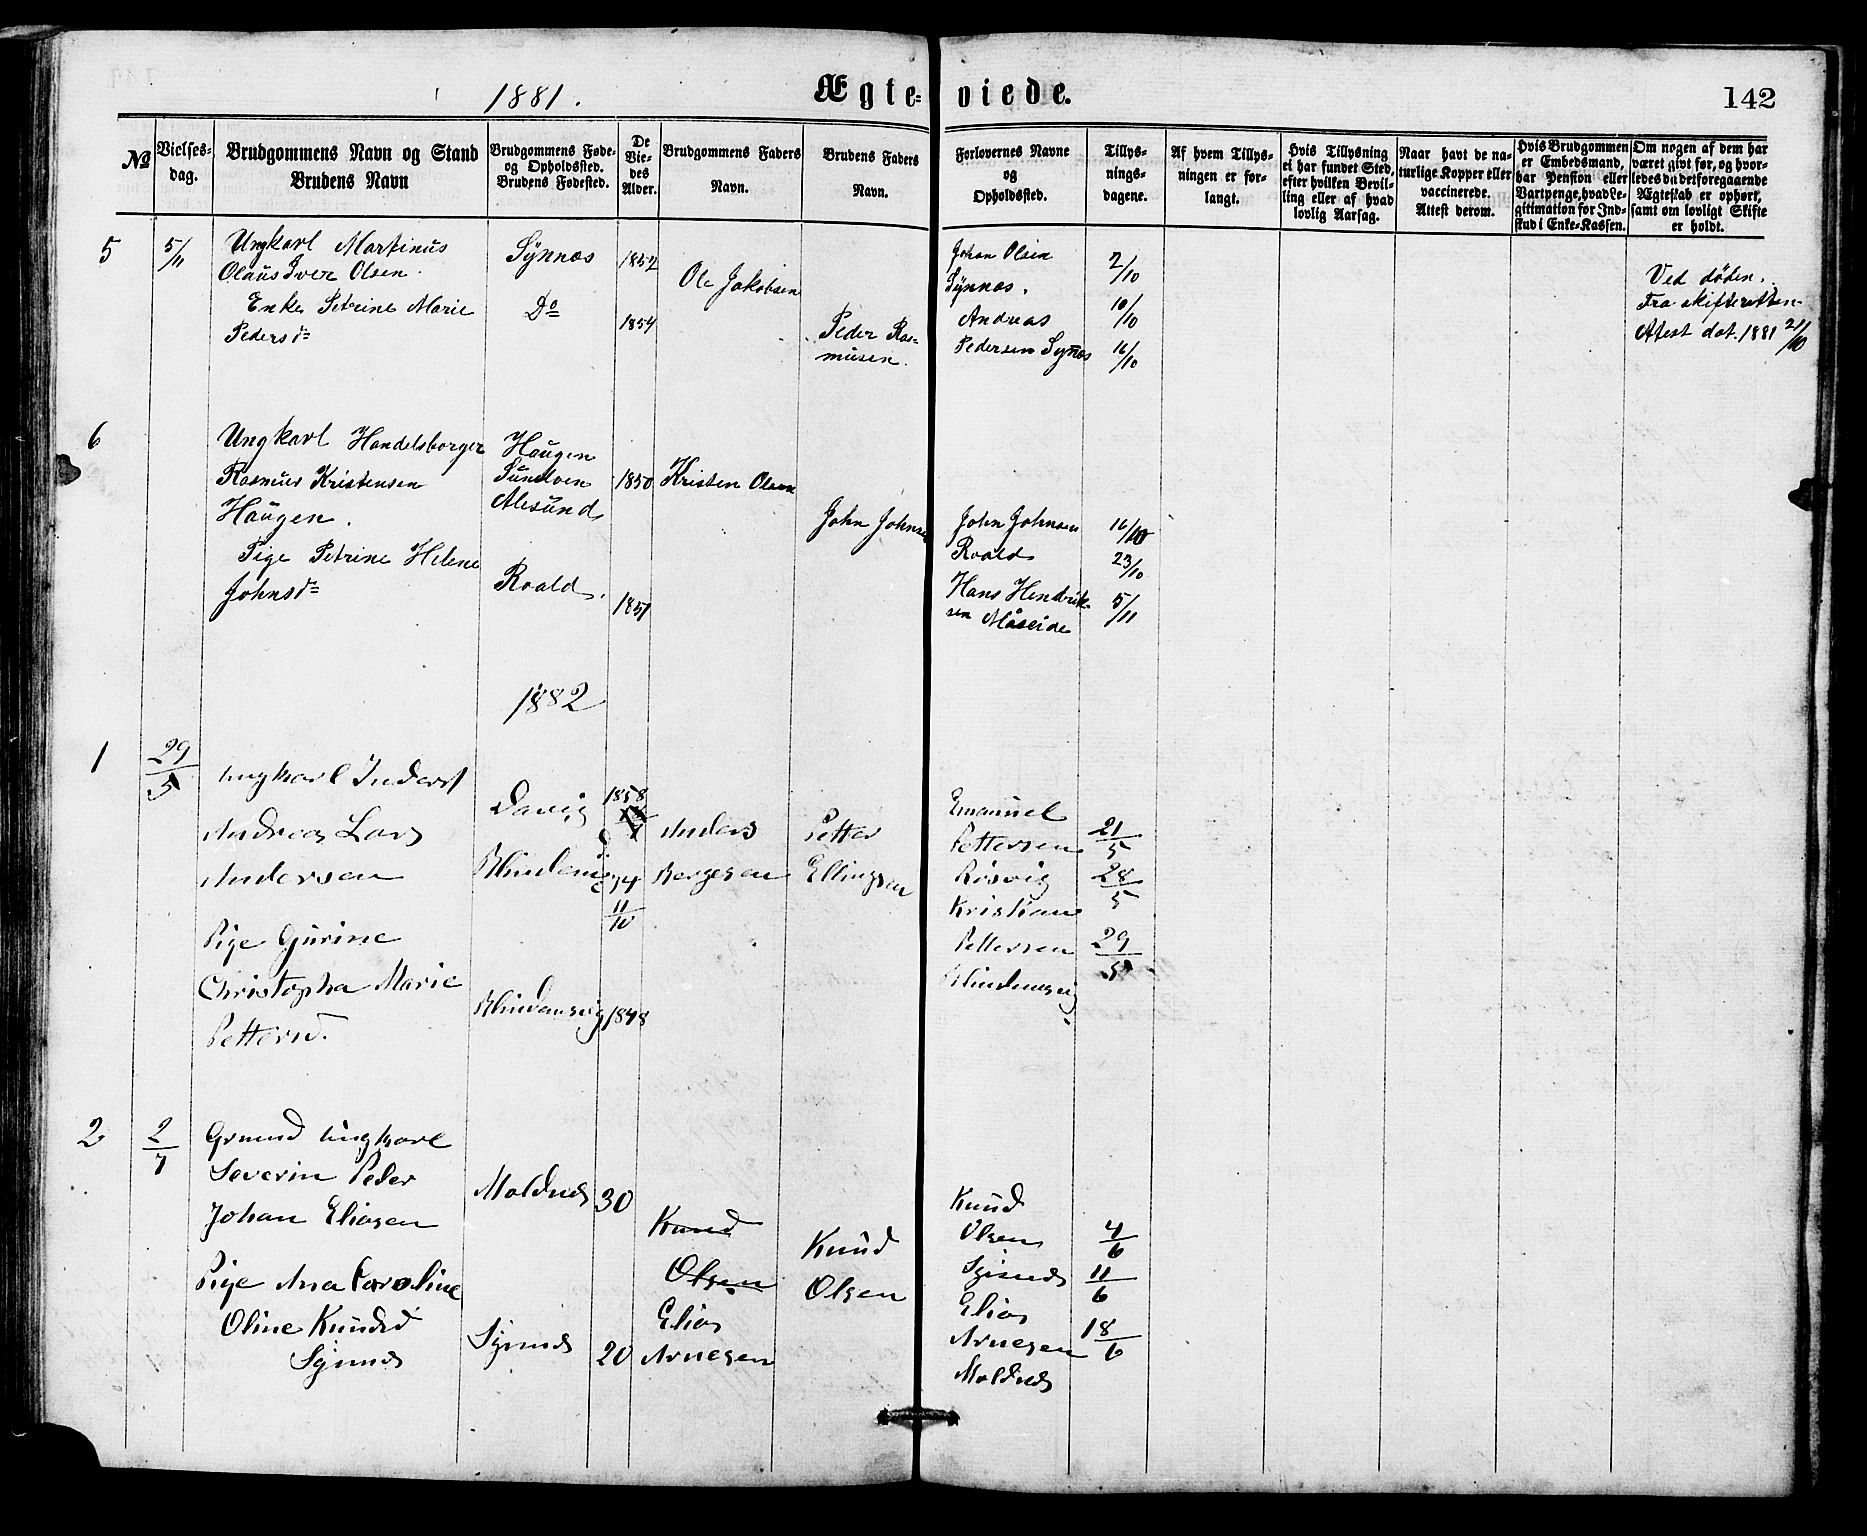 1881.
Ægte-viede.
142
No
Vielses-dag.
Brudgommens Navn og Stand
Brudens Navn
Brudgommens Føde- og Opholdssted.
Brudens Fødested.
De Vie-des Alder.
Brudgommens Faders Navn.
Brudens Faders Navn.
Forlovernes Navne og Opholdssted.
Tillys-nings-dagene.
Af hvem Tillys-ningen er for-langt.
Hvis Tillysning ei har fundet Sted, efter hvilken Bevil-ling eller af hvad lovlig Aarsag.
Naar havt de na-turlige Kopper eller vaccinerede. Attest derom.
Hvis Brudgommen er Embedsmand, har Pension eller Vartpenge, hvad Le-gitimation for Ind-skud i Enke-Kassen.
Om nogen af dem har været givt før, og hvor-ledes da det foregaaende Ægteskab er ophørt, samt om lovligt Skifte er holdt.
5
5/11
Ungkarl Martinus
Olaus Iver Olsen.
Enke Petrine Marie
Pedersd=
Synnæs
Do
1852
1854
Ole Jakobsen
Peder Ras-
musen.
Johan Olsen
Synnæs.
Andreas
Pedersen Synæs
2/10
10/10
16/10
Ved døden.
Fra skifteretten
Attest dat. 1881 21/10
6
Ungkarl Handelsborger
Rasmus Kristensen
Haugen.
Pige Petrine Helene
Johnsd=
Haugen
Sundven
Alesund
Roald.
1850
1851
Kristen Olsen
John Johnsen
John Johnsen
Roald
Hans Hendrik-
sen Måseide
16/10
23/10
5/11
1882
1
29/5
Ungkarl Inderst
Andreas Lars
Andersen
Pige Gurine
Christopha Marie
Petterd.
Davig
Blindem
Blindemsvig
1858
11/10
1848
Anders
Bergesen
Petter
Ellingsen
Emanuel
Pettersen
Rösvig
Kristian
Pettersen
Blindemsvig
21/5
28/5
29/5
2
2/7
Grmnd Ungkarl
Severin Peder
Johan Eliasen
Pige Ana Caroline
Oline Knudsd
Synnes
Moldnes
Synnes
30
20
Knud
Olsen
Elias
Arnesen
Knud
Olsen
Knud
Olsen
Synnes
Elias
Arnesen
Moldnes
4/6
11/6
18/6